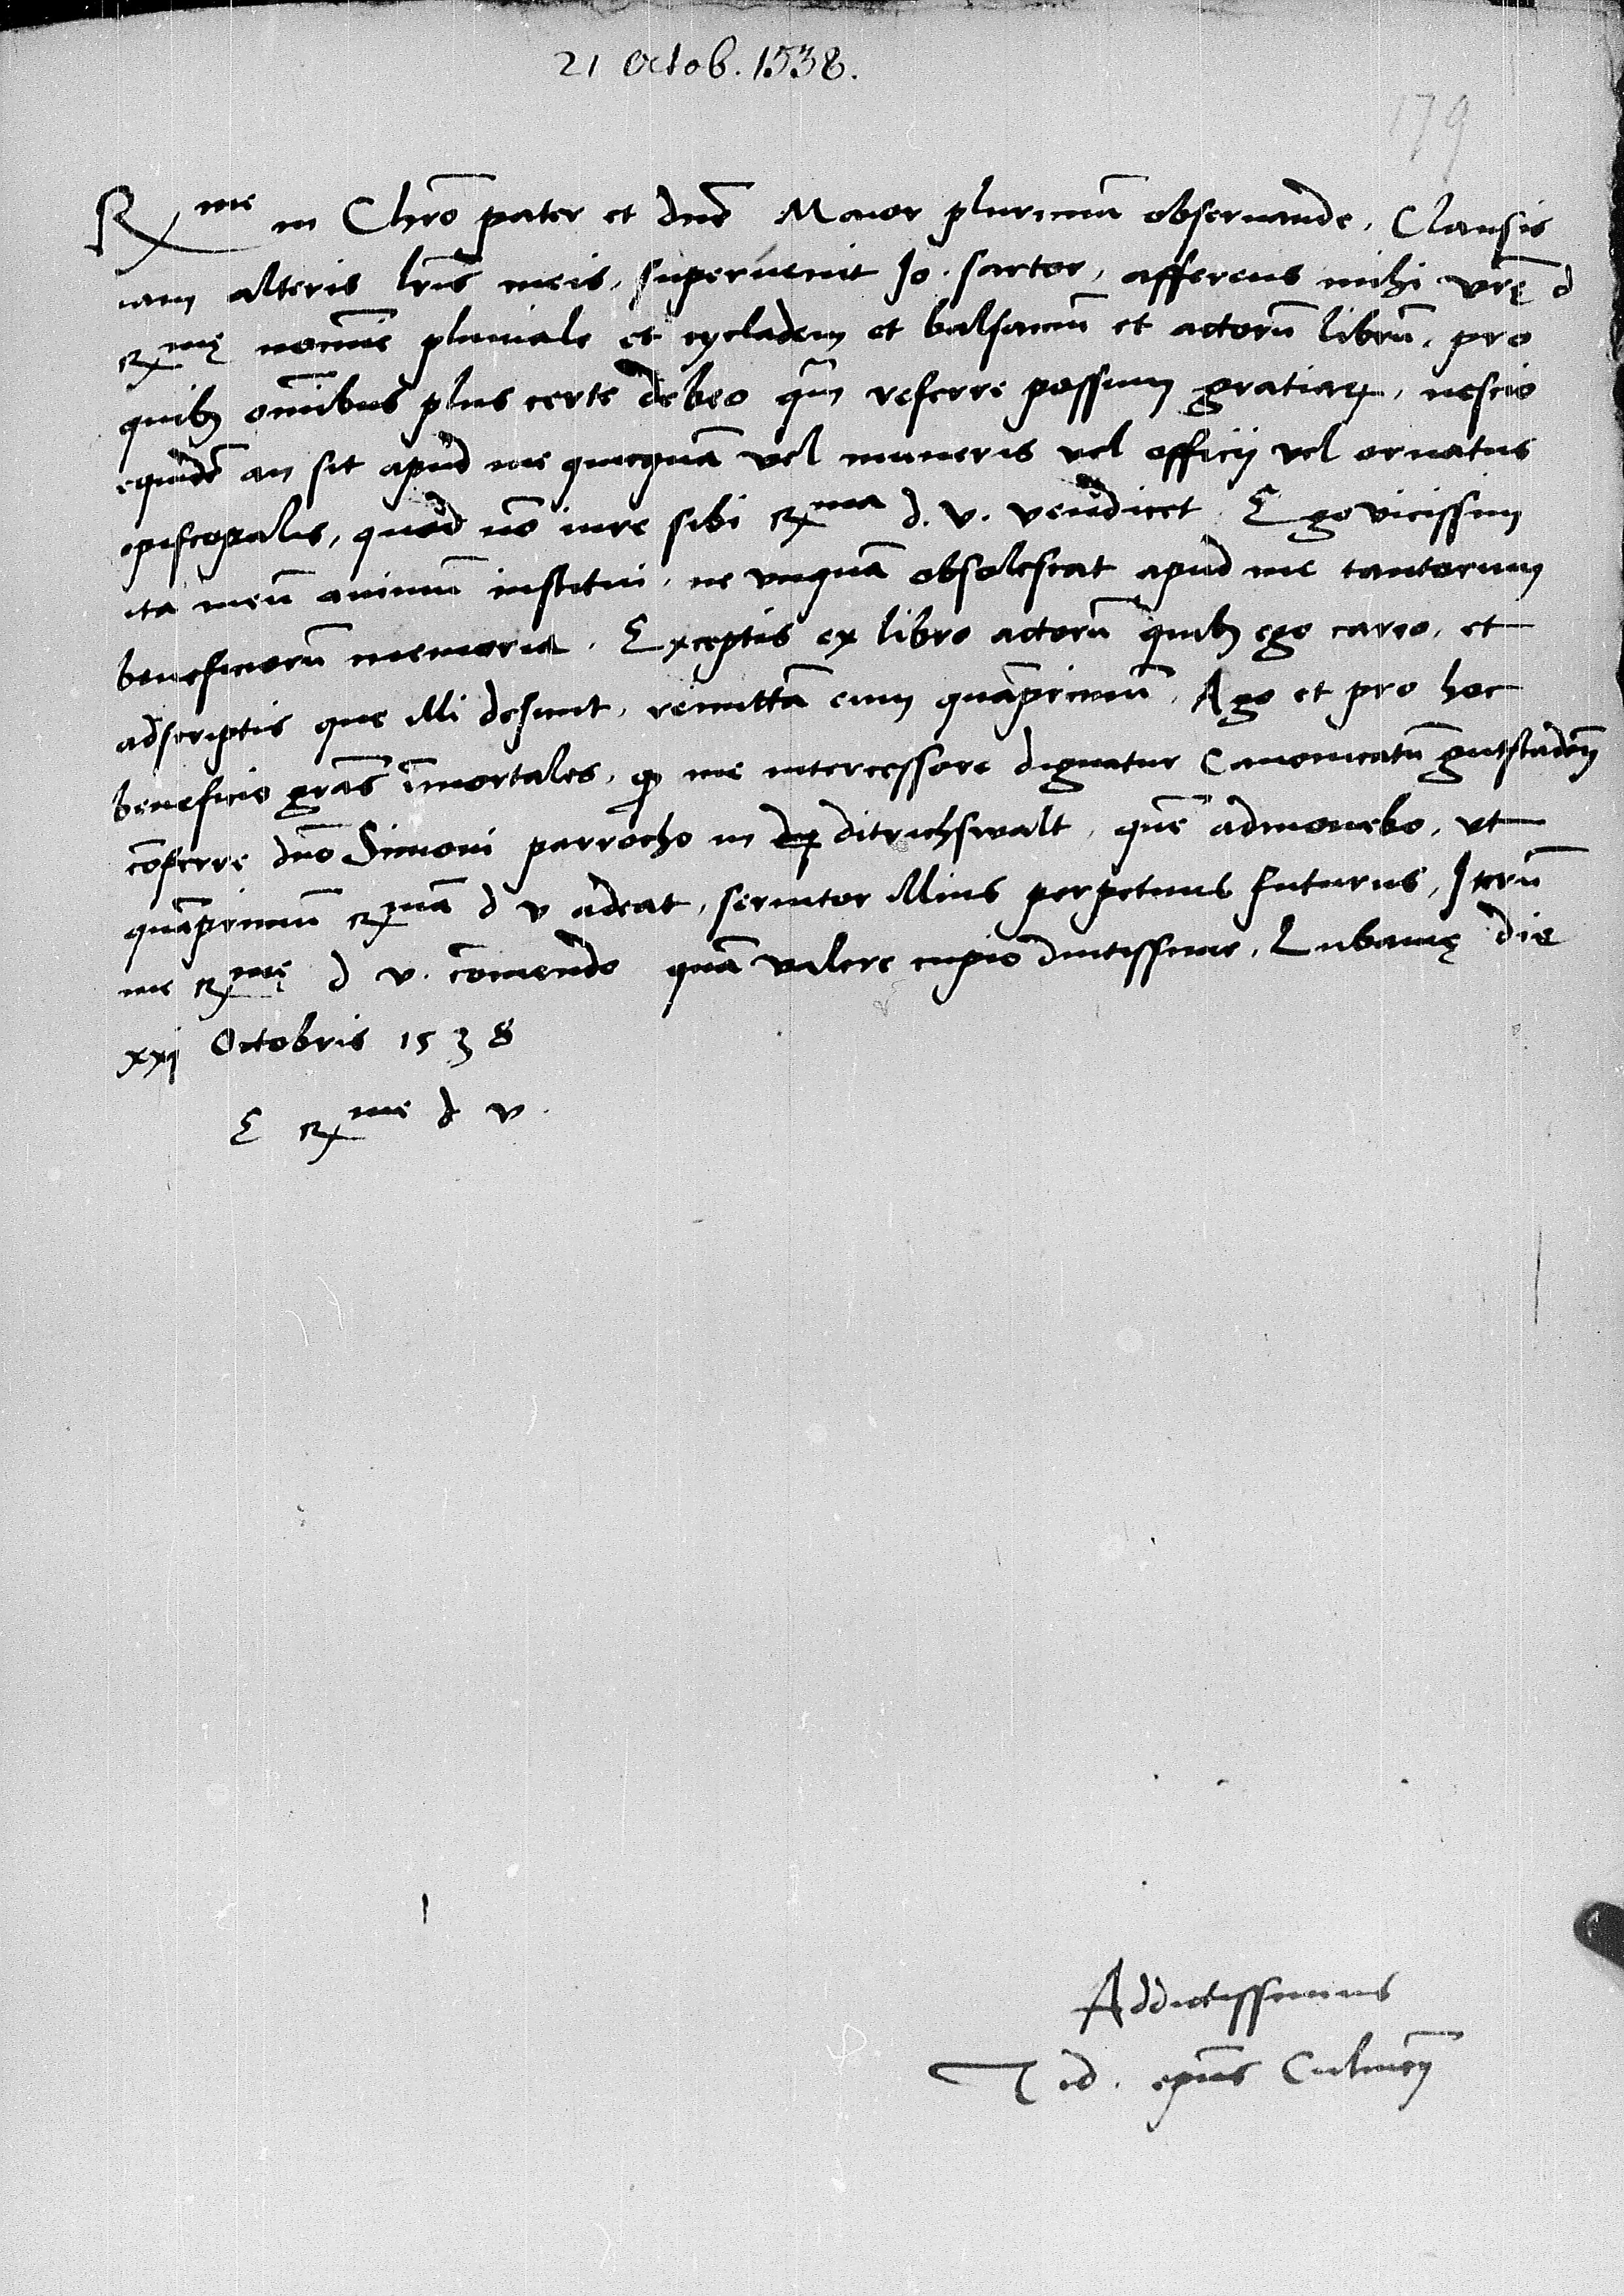 21 Octob. 1538.
179
Rx me in Chro pater et dne Maior plurimũ obseruande, Clausis
iam alteris lris meis, superuenit Jo. sartor, afferens mihi vrę d
Rx mę nomine pluuiale et cycladem et balsamũ et actorũ librũ, pro
quibꝫ omibus plus certe debeo qm referre possum gratiaꝝ, nescio
equidẽ an sit apud me quicquã vel muneris vel officij vel ornatus
episcopalis, quod nõ iure sibi Rx ma d. v. vendicet. Ego vicissim
ita meũ animũ institui, ne vnquã obsolescat apud me tantorum
beneficiorũ memoria. Exceptis ex libro actorũ quibꝫ ego careo, et
adscriptis que illi desunt, remittã eum quãprimũ. Ago et pro hoc
beneficio gras ĩmortales, ꝙ me intercessore dignatur Canonicatũ gutstadeñ
cõferre dno Simoni parrocho in ditrichswalt, quẽ admonebo, vt
quãprimũ Rx mã d v adeat, seruitor illius perpetuus futurus, Iterũ
me Rx mę d v. cõmendo quã valere cupio diutissime. Lubauię die
xxj Octobris 1538
E Rx me d v.
Addictissimus
Tid. epus Culmeñ